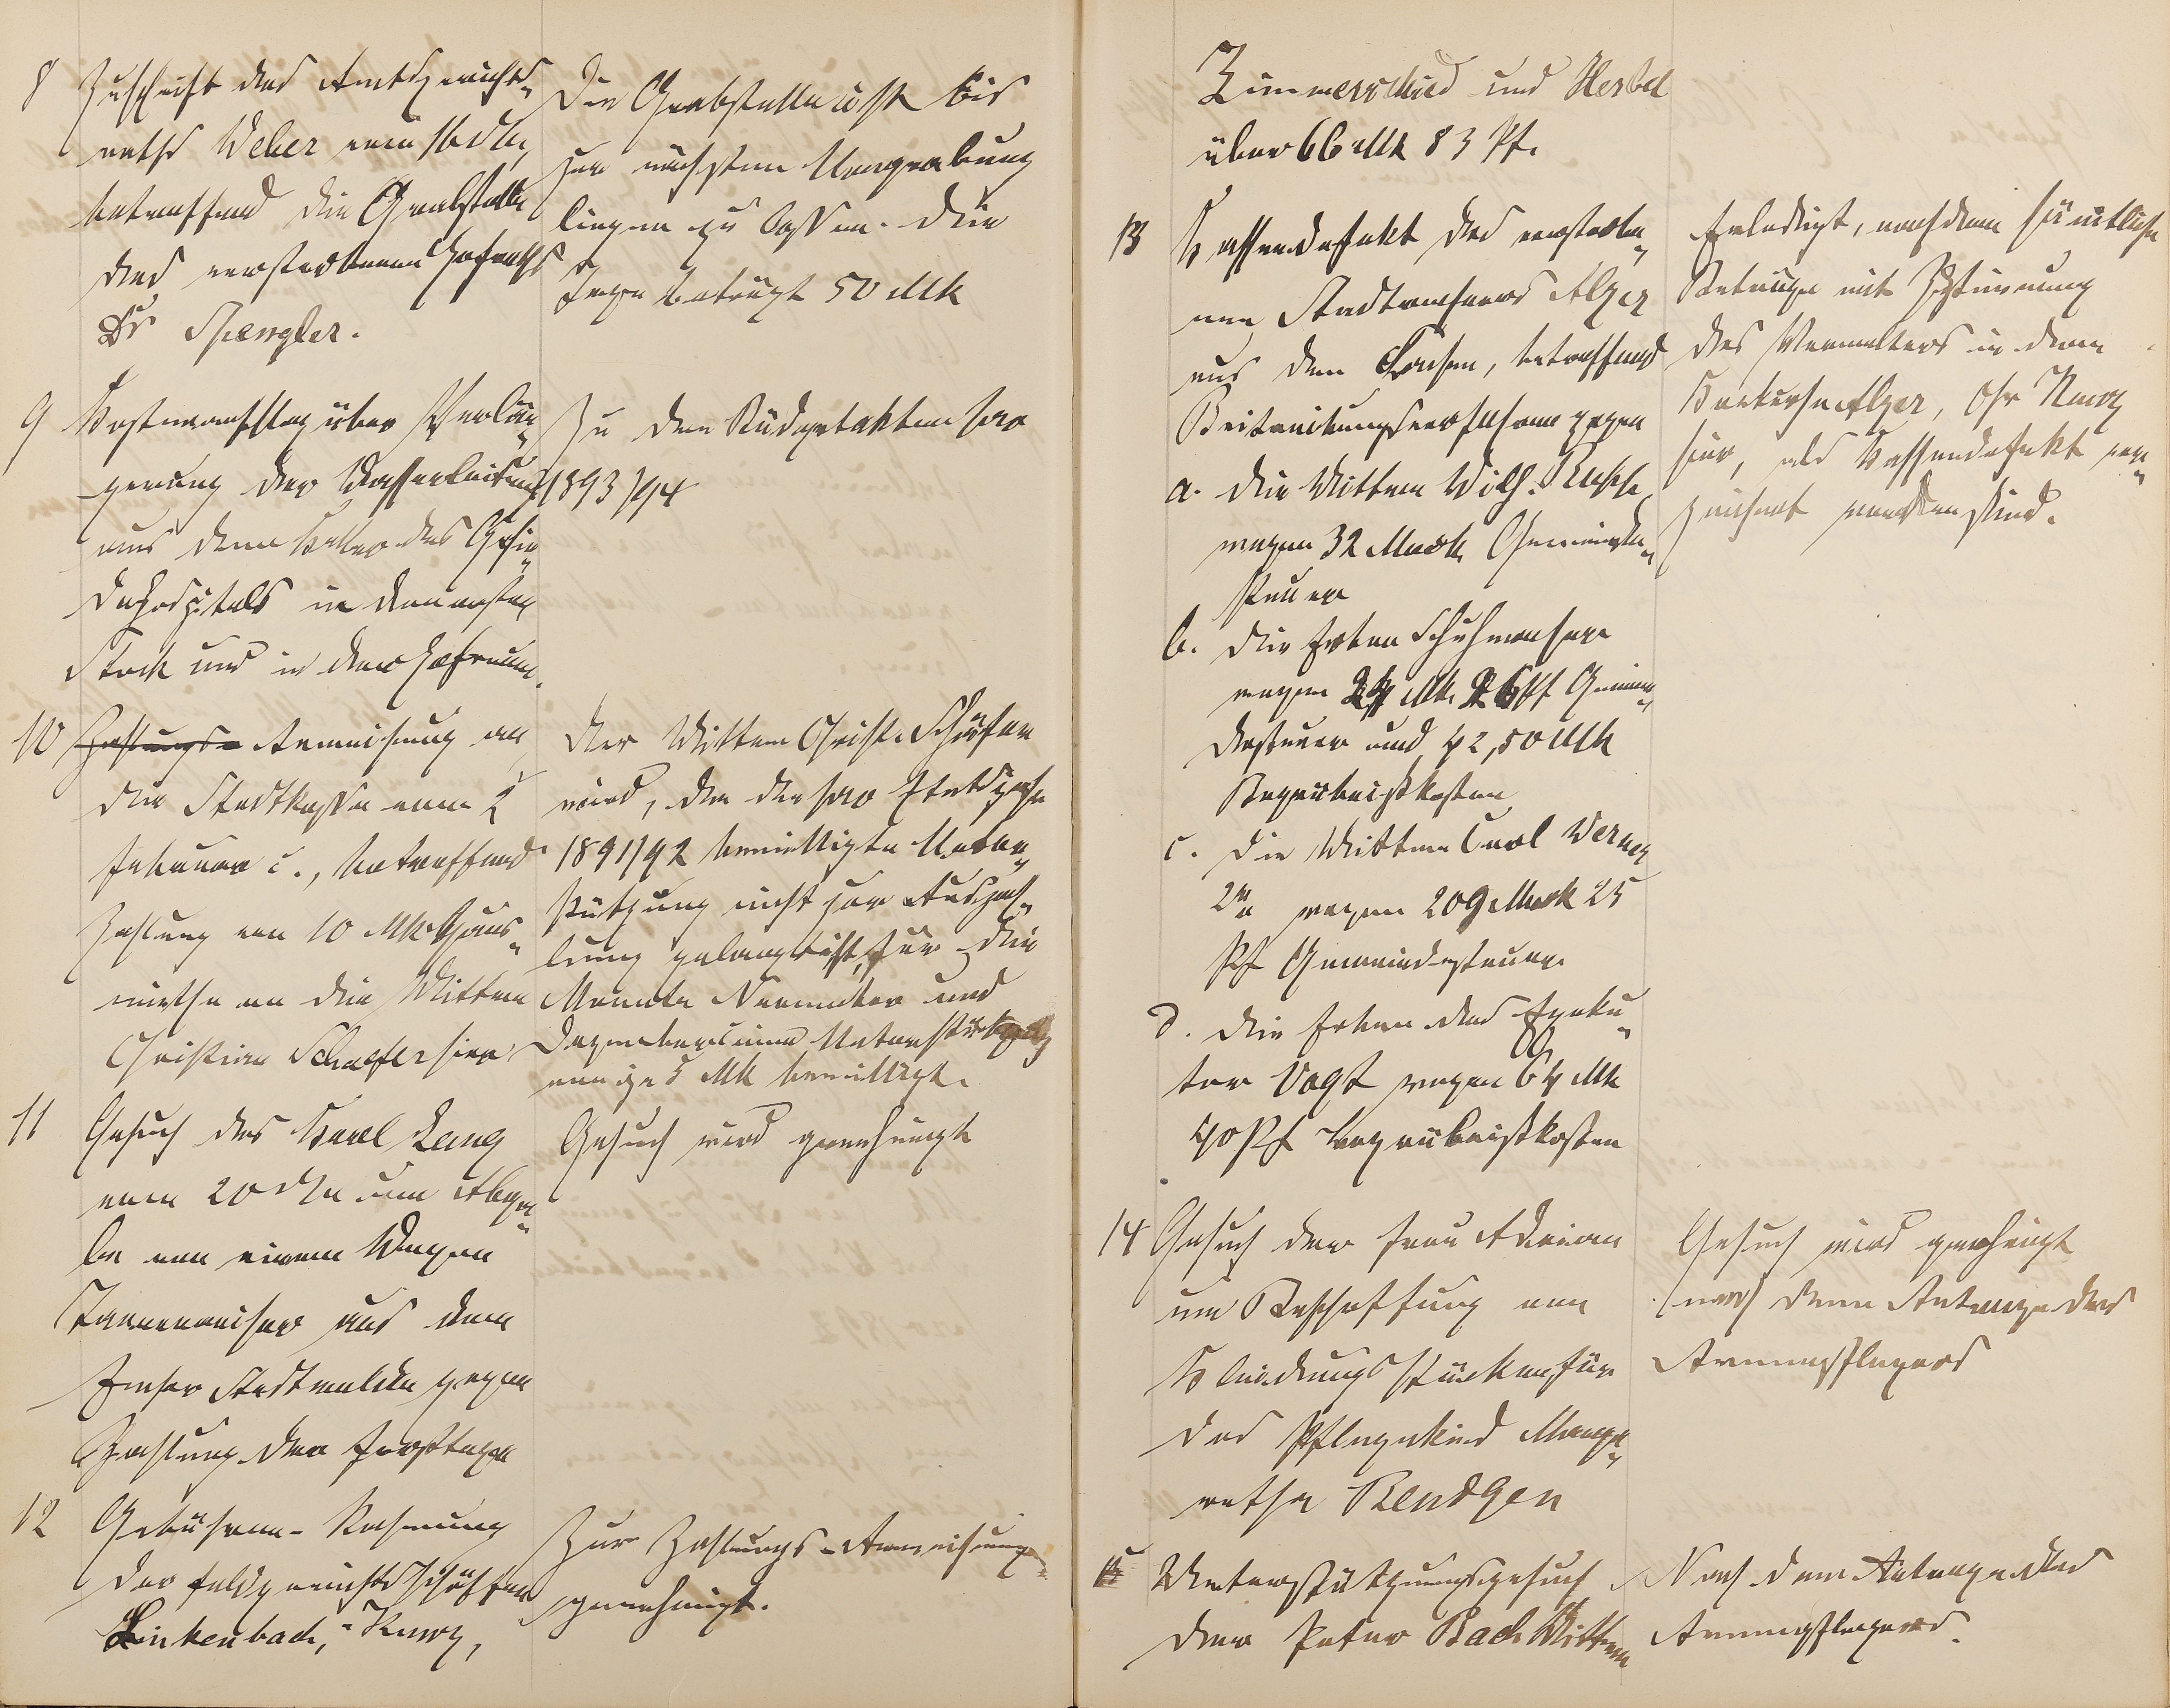 8 Zuschrift des Amtsgerichts-
raths Weber vom 16 d Mts,
betreffend die Grabstelle
des verstorbenen Hofraths
Dr Spengler.
Die Grabstelle ist bis
zur nächsten Umgrabung
liegen zu lassen. Die
Taxe beträgt 50 Mk
9 Kostenanschlag über Verlän-
gerung der Wasserleitung
aus dem Keller des Gesin-
dehospitals in den ersten
Stock und in den Hofraum.
Zu den Büdgetakten pro
1893/94
10 Zahlungs- Anweisung an
die Stadtkasse vom 2
Februar c., betreffend
Zahlung von 10 Mk Haus-
miethe an die Wittwe
Christian Schaefer hier
Der Wittwe Christ. Schäfer
wird, da die pro Etatsjahr
1891/92 bewilligte Unter-
stützung nicht zur Auszah-
lung gelangt ist, für die
Monate November und
Dezember eine Unterstützung
von je 5 Mk bewilligt.
11 Gesuch des Karl Lang
vom 20 d Mts um Abga-
be von einem Wagen
Tannenreiser aus dem
Emser Stadtwalde gegen
Zahlung der Forsttaxe
Gesuch wird genehmigt
12 Gebühren-Rechnung
der Feldgerichtsschöffen
Linkenbach, Kurz,
Zur Zahlungs-Anweisung
genehmigt.
Zimmerschied und Herbel
über 66 Mk 83 Pf.
13 Kassendefekt des verstorbe-
nen Stadtrechners Alzer
aus den Sachen, betreffend
Beitreibungsverfahren gegen
a. die Wittwe Wilh.
wegen 32 Mark Gemeinde-
steuer
b. die Erben Schuhmacher
wegen Mk. Pf Gemein-
desteuer und 42,50 Mk
Begräbnißkosten
c. die Wittwe Carl Werner
2r wegen 209 Mark 25
Pf Gemeindesteuer
d. die Erben des Exeku-
tor Vogt wegen 64 Mk
40 Pf Begräbnißkosten
Erledigt, nachdem sämtliche
Beträge mit Zustimmung
des Verwalters in dem
Konkurse Alzer, Chr Kurz
hier, als Kassendefekt ver-
zeichnet worden sind.
14 Gesuch der Frau Adrian
um Beschaffung von
Kleidungsstücken für
das Pflegekind Marga-
rethe Bendgen
Gesuch wird genehmigt
nach dem Antrage des
Armenpflegers
15 Unterstützungsgesuch
der Peter Bach Wittwe
Nach dem Antrage des
Armenpflegers.